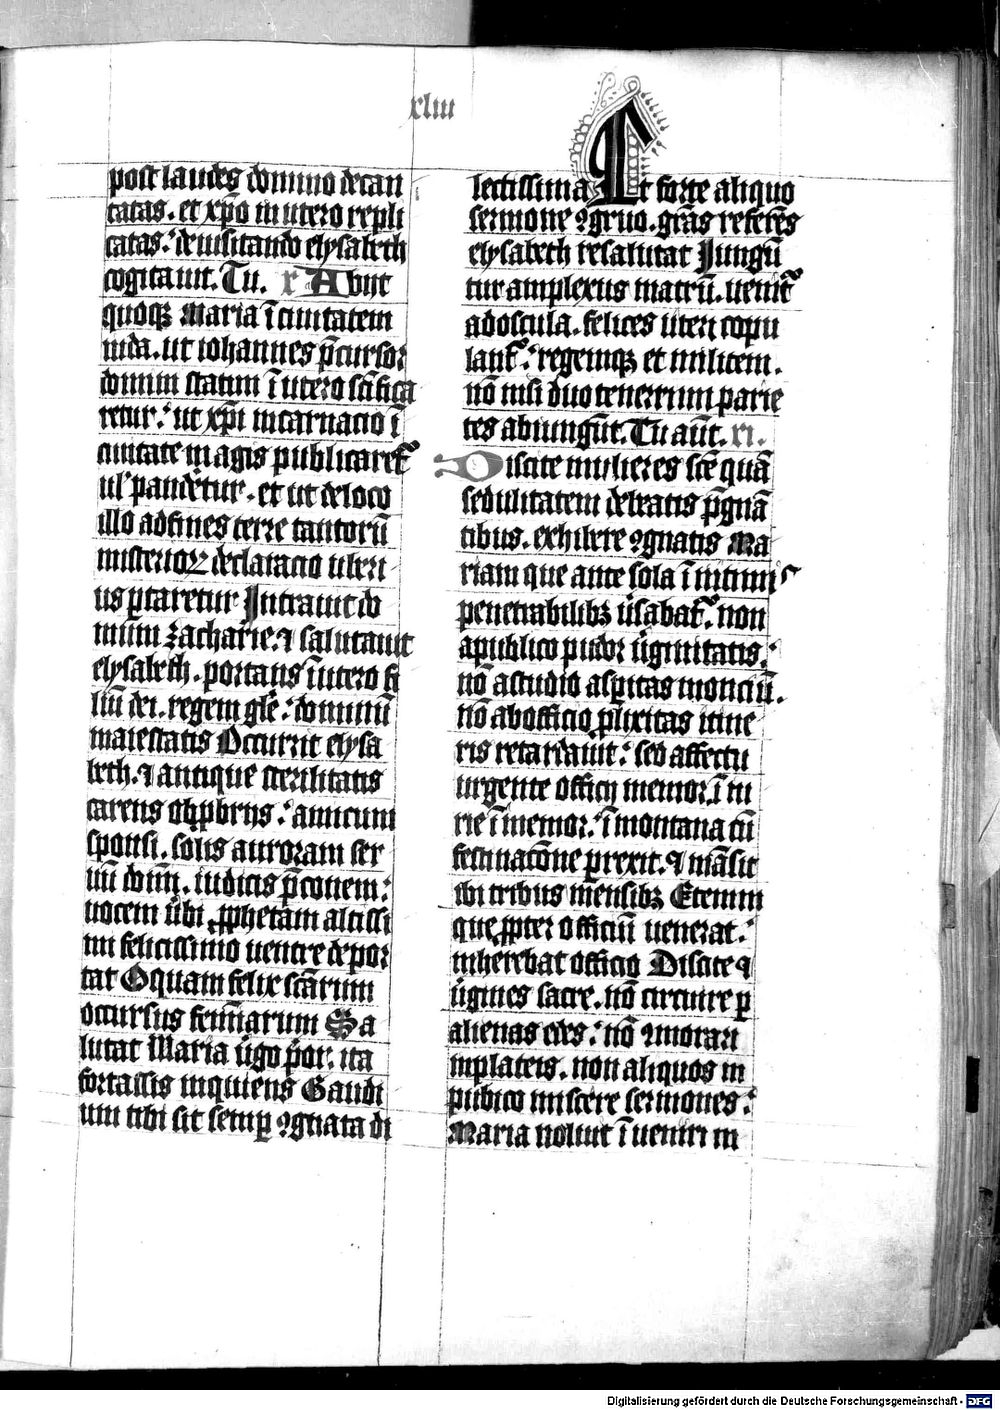 xliii
post laudes domino decan
tatas. et xp̄o in utero repli
catas.' de uisitando elysabeth
cogitauit. Tu. x Abijt
quoqꝫ Maria ī ciuitatem
iuda. ut iohannes p̄cursor
domini statim ī utero sc̄ifica
retur.' ut xp̄i incarnacio ī
ciuitate magis publicaret᷑
ul' pandetur. et ut de loco
illo ad fines terre tantorū
misterioꝝ declaracio uberi
us ꝑtaretur Intrauit do
mum zacharie. ⁊ salutauit
elysabeth. portans ī utero fi
liū dei. regem gl̄e.' dominū
maiestatis Occurrit elysa
beth. ⁊ antique sterilitatis
carens obꝑbrijs.' amicum
sponsi. solis auroram ser
uū dom̄i. iudicis p̄conem.'
uocem ūbi ꝓphetam altissi
mi felicissimo uentre depor
tat O quam felix sc̄arum
occursus femīarum Sa
lutat Maria ūgo p̄or. ita
fortassis inquiens Gaudi
um tibi sit semꝑ ꝯgnata di
lectissima Et forte aliquo
sermone ꝯgruo. gr̄as referēs
elysabeth resalutat Jungū
tur amplexus matrū. uenit᷑
ad oscula. felices uteri copu
lant᷑.' regemqꝫ et militem.
nō nisi duo tenerrum parie
tes abiungūt. Tu aūt. xi.
Discite mulieres sc̄e quā
sedulitatem debeatis p̄gnā
tibus. exhibere ꝯgnatis Ma
riam que ante sola ī intimis
penetrabilibꝫ ūsabat᷑. non
a publico pudor ūginitatis.'
nō a studio asꝑitas monciū.
nō ab officio ꝓlixitas itine
ris retardauit.' sed affectu
urgente officij memor. ī iu
rie īmemor.' ī montana cū
festinacōne ꝑrexit. ⁊ māsit
ibi tribus mensibꝫ Etenim
que ꝓpter officiū uenerat.'
inherebat officio Discite ⁊
ūgines sacre. nō circuire ꝑ
alienas edes.' nō ꝯmorari
in plateis. non aliquos in
publico miscere sermones.'
Maria noluit īueniri in
Digitalisierung gefördert durch die Deutsche Forschungsgemeinschaft - DFG